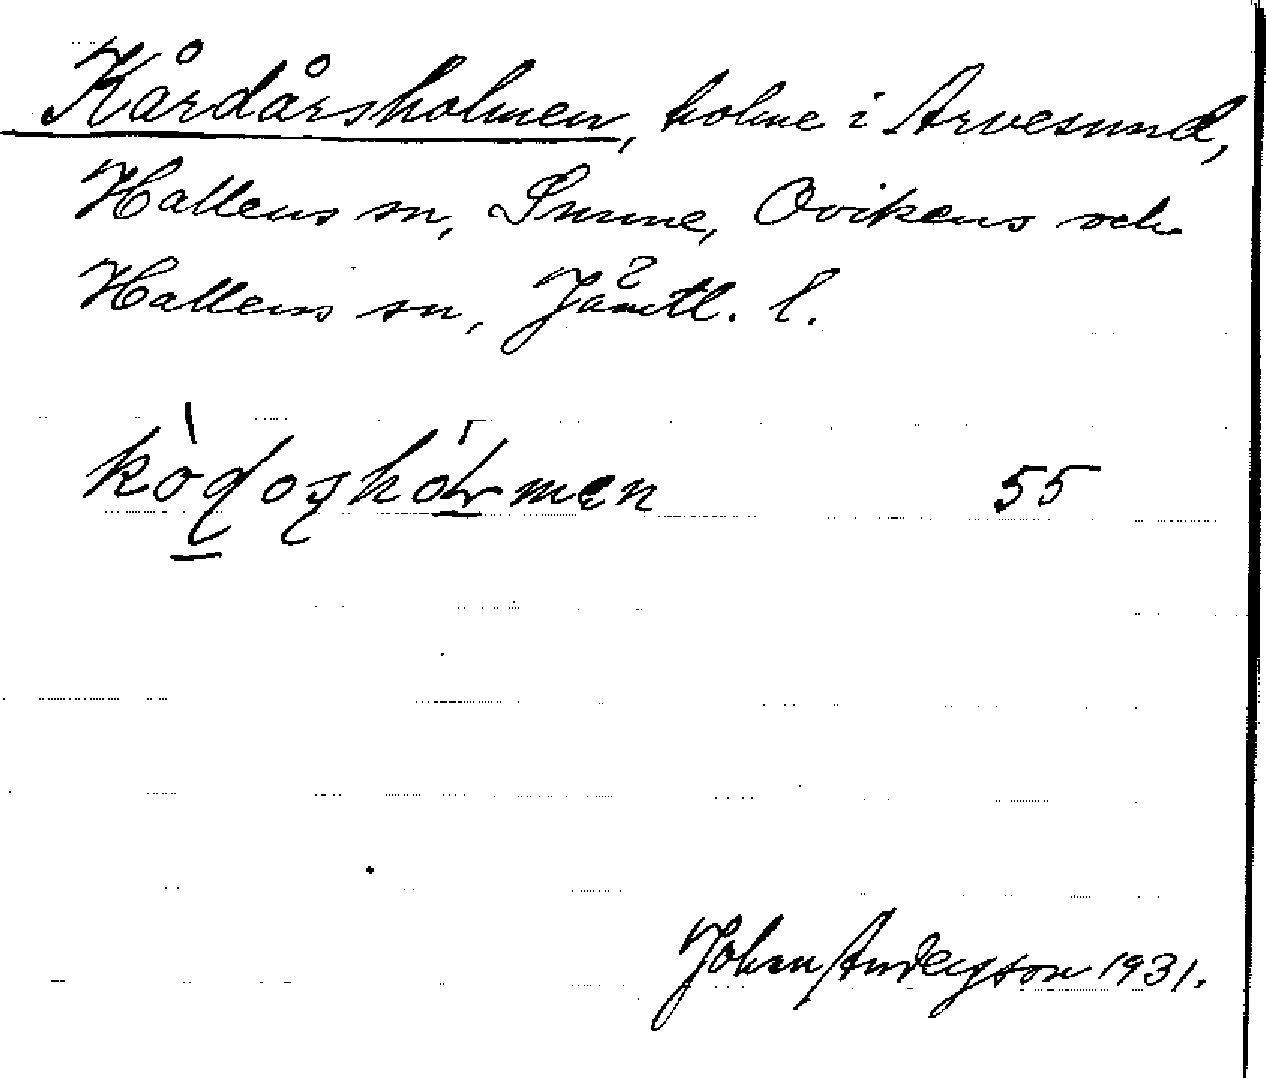 Kårdårsholmen, holme i Arvesund,
Hallens sn, Sunne, Ovikens och
Hallens sn, Jämtl. l.
55
John Anderson 1931.